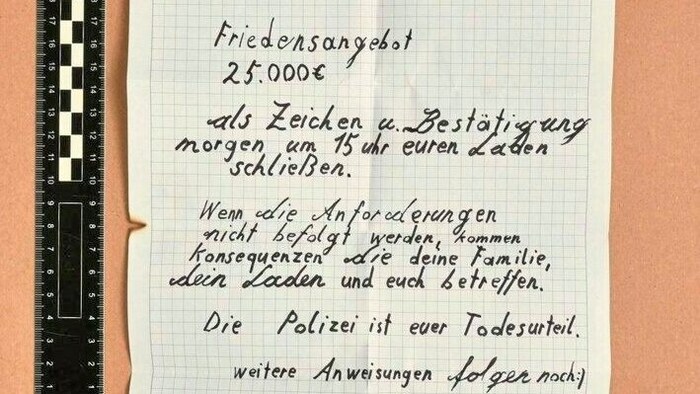 Friedensangebot
25.000€
als Zeichen u. Bestätigung
morgen um 15 uhr euren Laden
schließen.
Wenn die Anforderungen
nicht befolgt werden, kommen
Konsequenzen die deine Familie,
dein Laden und euch betreffen.
Die Polizei ist euer Todesurteil.
weitere Anweisungen folgen noch:)